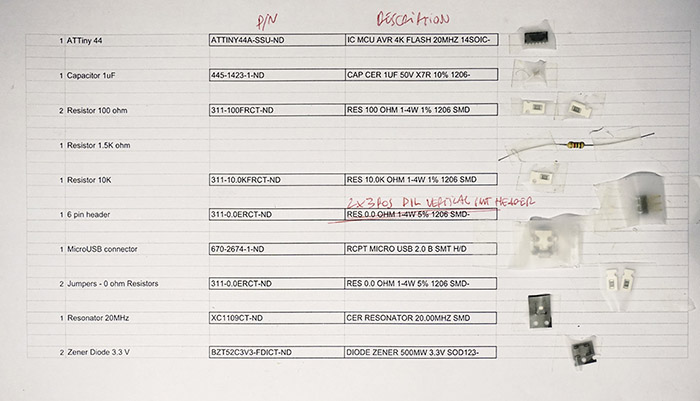 P/N DESCRIPTION
1 ATTiny 44 ATTINY44A-SSU-ND IC MCU AVR 4K FLASH 20MHZ 14SOIC-
1 Capacitor 1uF 445-1423-1-ND CAP CER 1UF 50V X7R 10% 1206-
2 Resistor 100 ohm 311-100FRCT-ND RES 100 OHM 1-4W 1% 1206 SMD
1 Resistor 1.5K ohm
1 Resistor 10K 311-10.0KFRCT-ND RES 10.0K OHM 1-4W 1% 1206 SMD
2X3 POS DIL VERTICAL SMT HEADER
1 6 pin header 311-0.0ERCT-ND RES 0.0 OHM 1-4W 5% 1206 SMD-
1 MicroUSB connector 670-2674-1-ND RCPT MICRO USB 2.0 B SMT H/D
2 Jumpers - 0 ohm Resistors 311-0.0ERCT-ND RES 0.0 OHM 1-4W 5% 1206 SMD-
1 Resonator 20MHz XC1109CT-ND CER RESONATOR 20.00MHZ SMD
2 Zener Diode 3.3 V BZT52C3V3-FDICT-ND DIODE ZENER 500MW 3.3V SOD123-